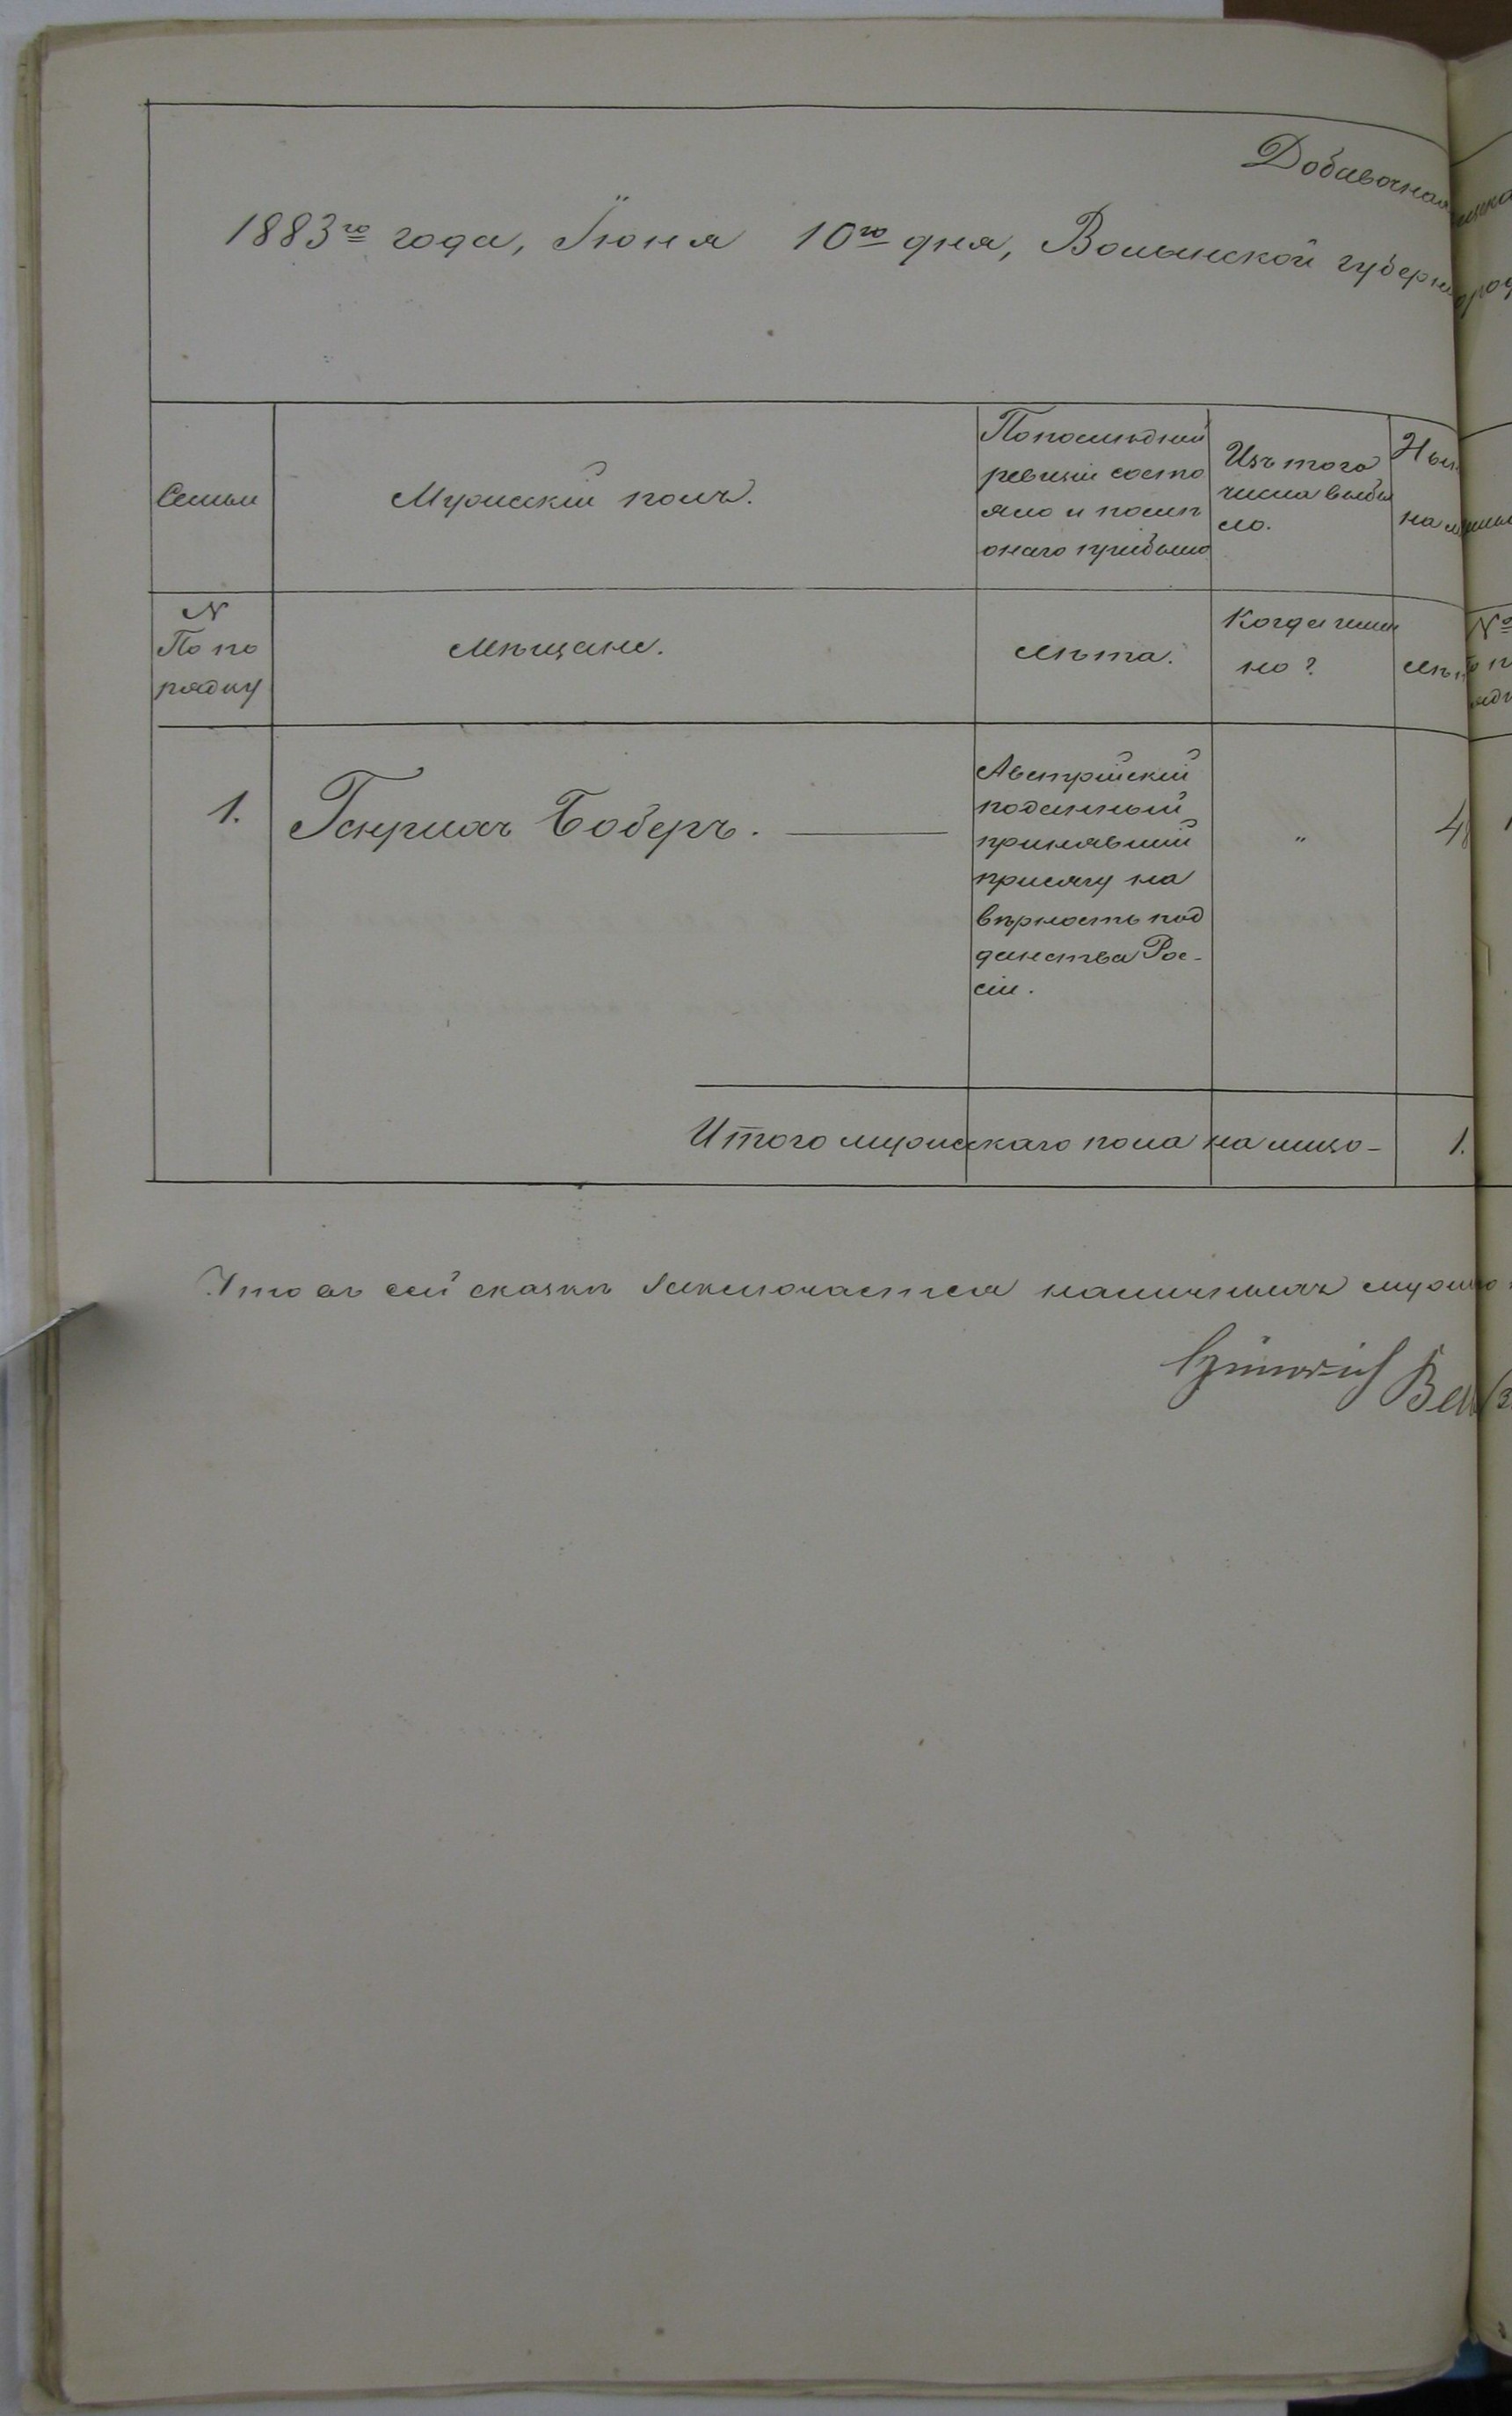 Добавочная
1883го года, Іюня 10го дня, Волынской губерн
Семьи
Мужескій полъ.
По послѣдней
ревизіи состо
яло и послѣ
онаго прибыло
Изъ того
числа выбы
ло.
Нын
на л
N
По по
рядку
Мѣщане.
Лѣта.
Когда имен
но?
Лѣт
1.
Генрихъ Боберъ.
Австрійскій
поданный
принявший
присягу на
вѣрность под
данства Рос-
сіи.
"
Итого мужескаго пола на лицо-
1.
Что въ сей сказкѣ заключается наличныхъ мужес
Heinrich